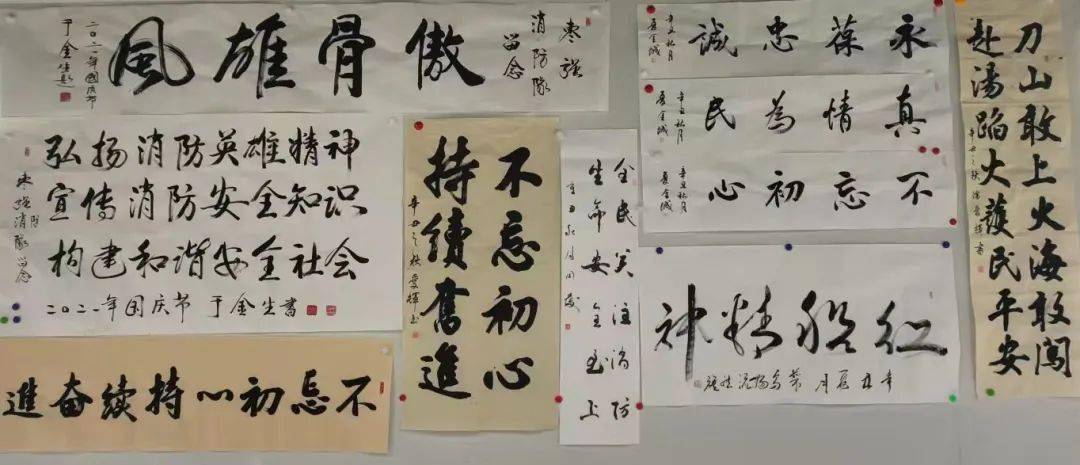 枣强
消防隊
留念
傲骨雄風
二〇二一年國庆节
于金生题
弘扬消防英雄精神
宣传消防安全知识
构建和谐安全社会
枣强消防隊留念
二〇二一年国庆节 于金生書
不忘初心持续奋進
不忘初心
持續奮進
辛丑之秋
全民关注消防
生命安全至上
永葆忠誠
辛丑秋月
真情為民
辛丑秋月
不忘初心
辛丑秋月
红船精神
辛丑夏月
刀山敢上火海敢闖
赴湯蹈火護民平安
辛丑之秋